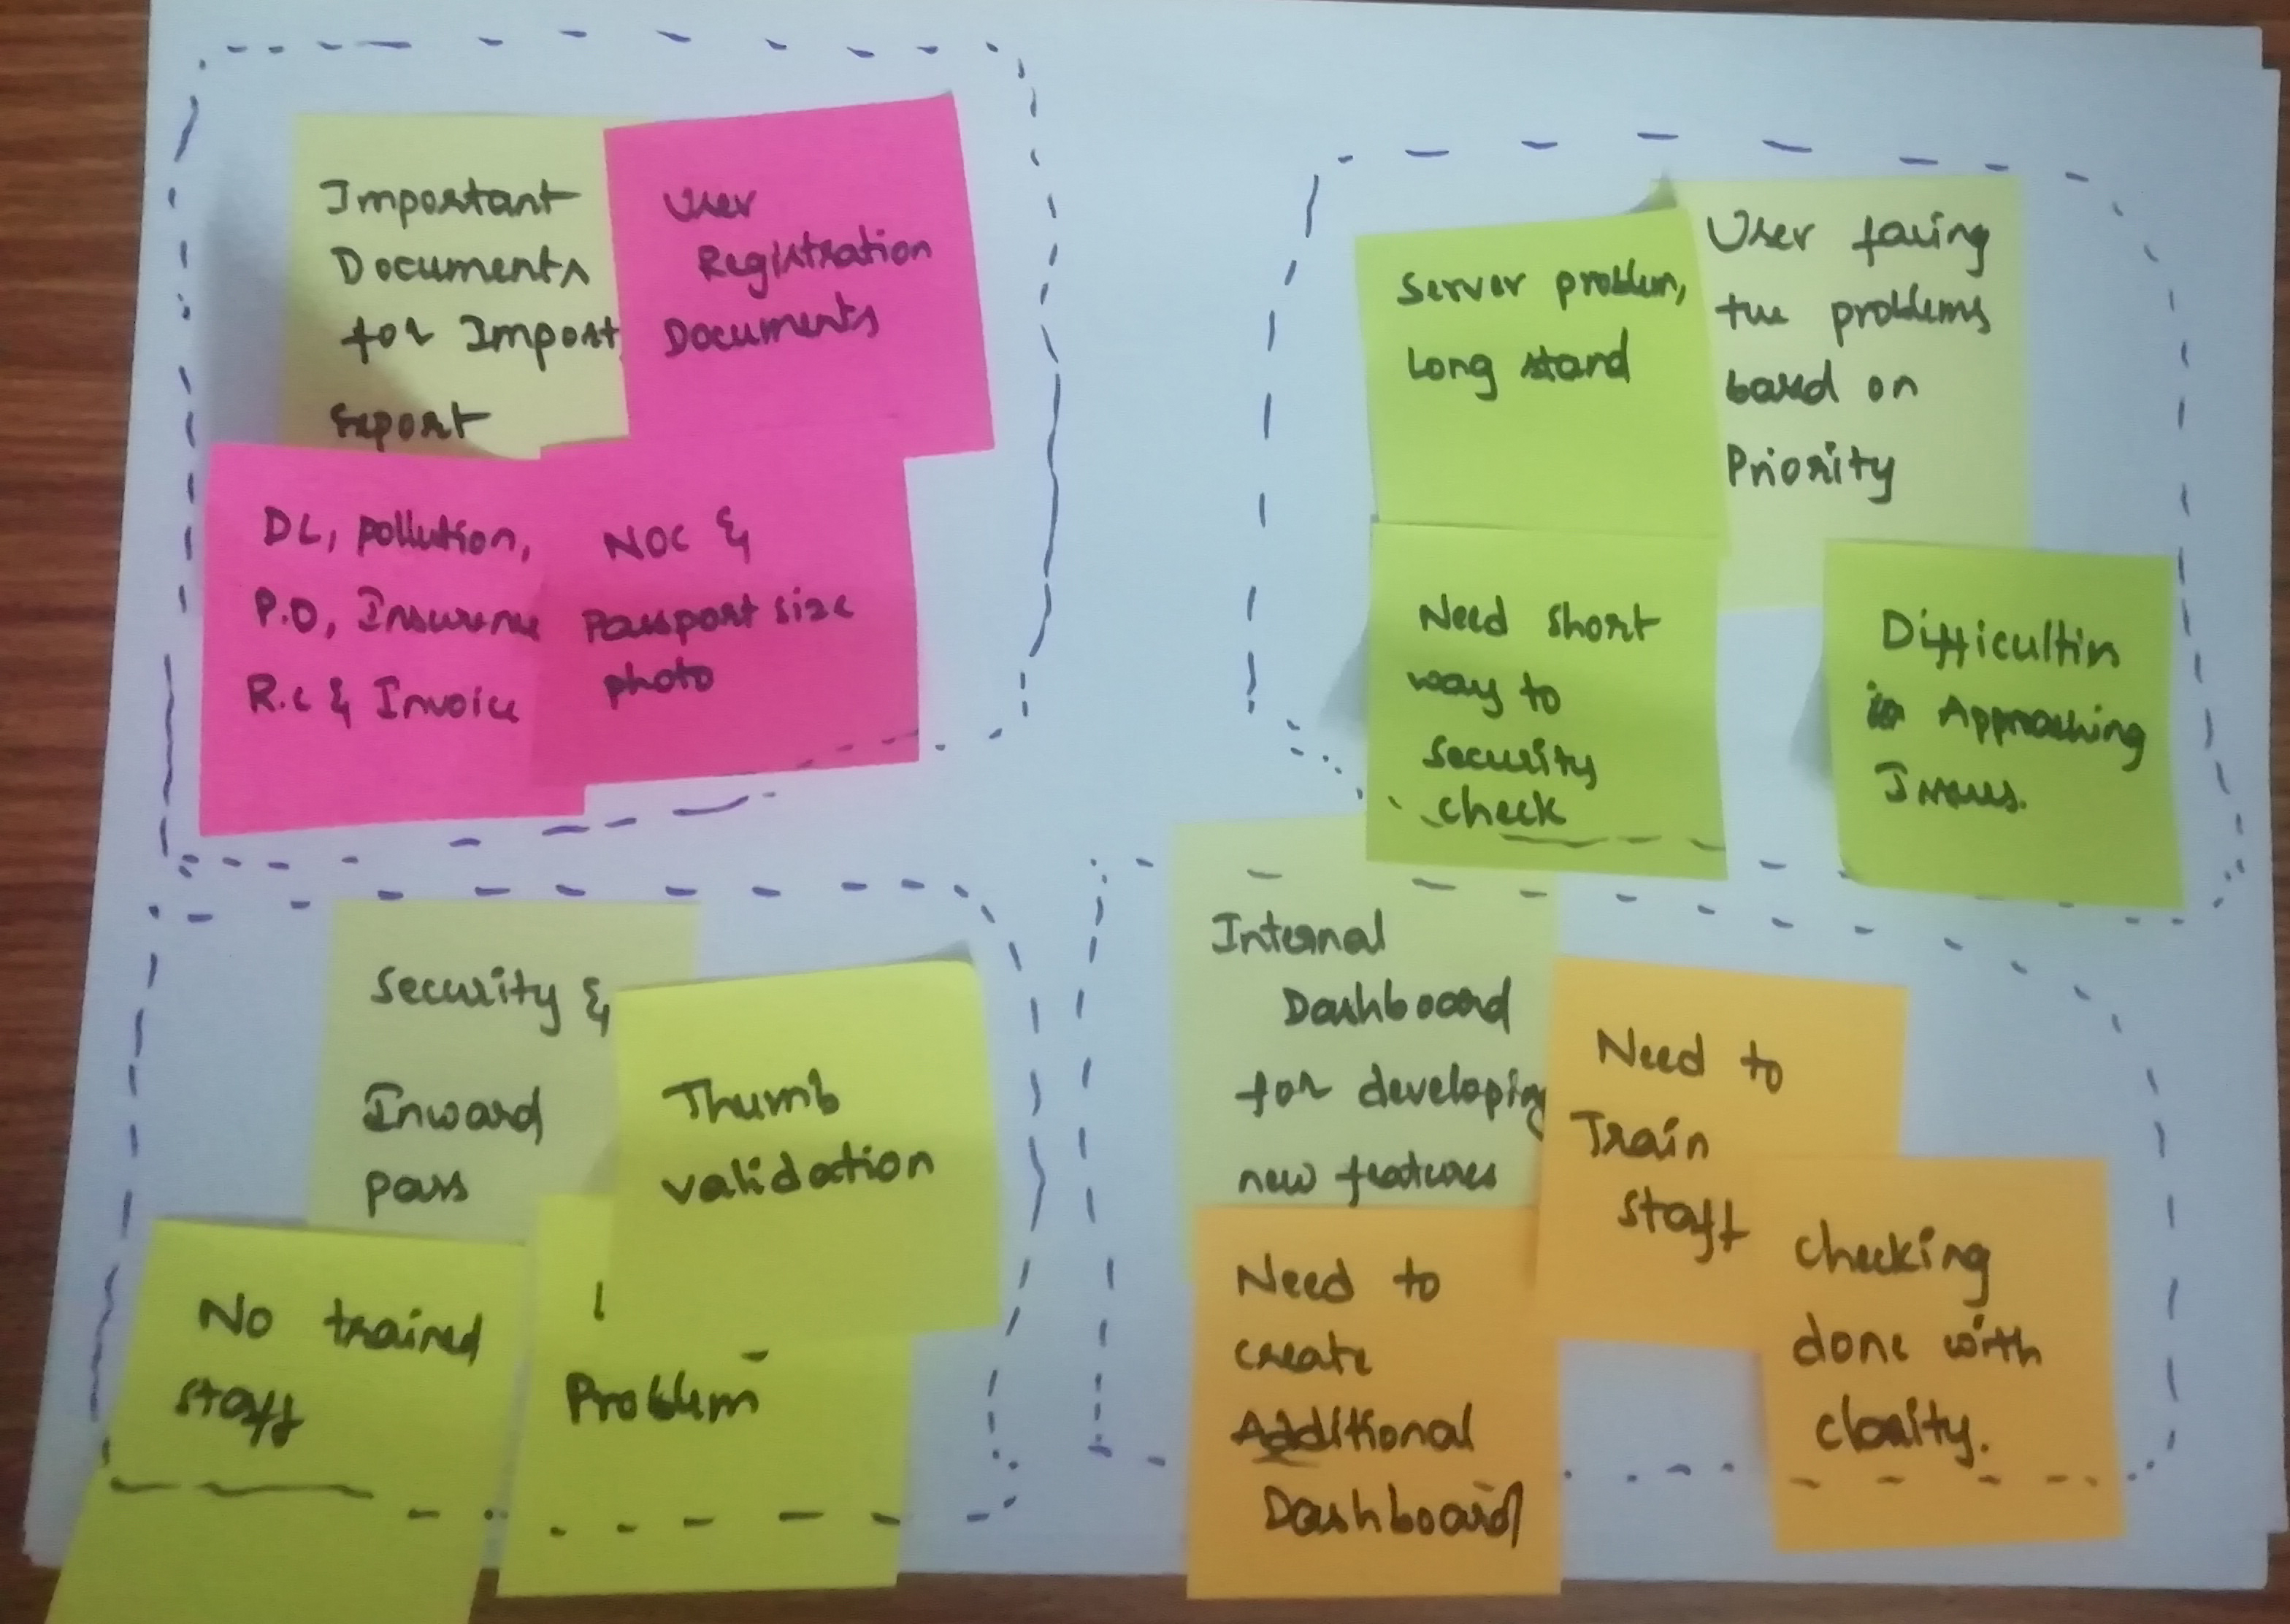 Important
Documents
for Import
Export
User
Registration
Documents
DL, pollution,
P.O, Insurance
R.C & Invoice
NOC &
Passport size
photo
Server problem,
Long stand
User facing
the problems
based on
Priority
Need short
way to
security
check
Difficulties
in Approaching
Issues.
Security &
Inward
pass
Thumb
validation
No trained
staff
Problem
Internal
Dashboard
for developing
new features
Need to
Train
staff
Need to
create
Additional
Dashboard
checking
done with
clarity.